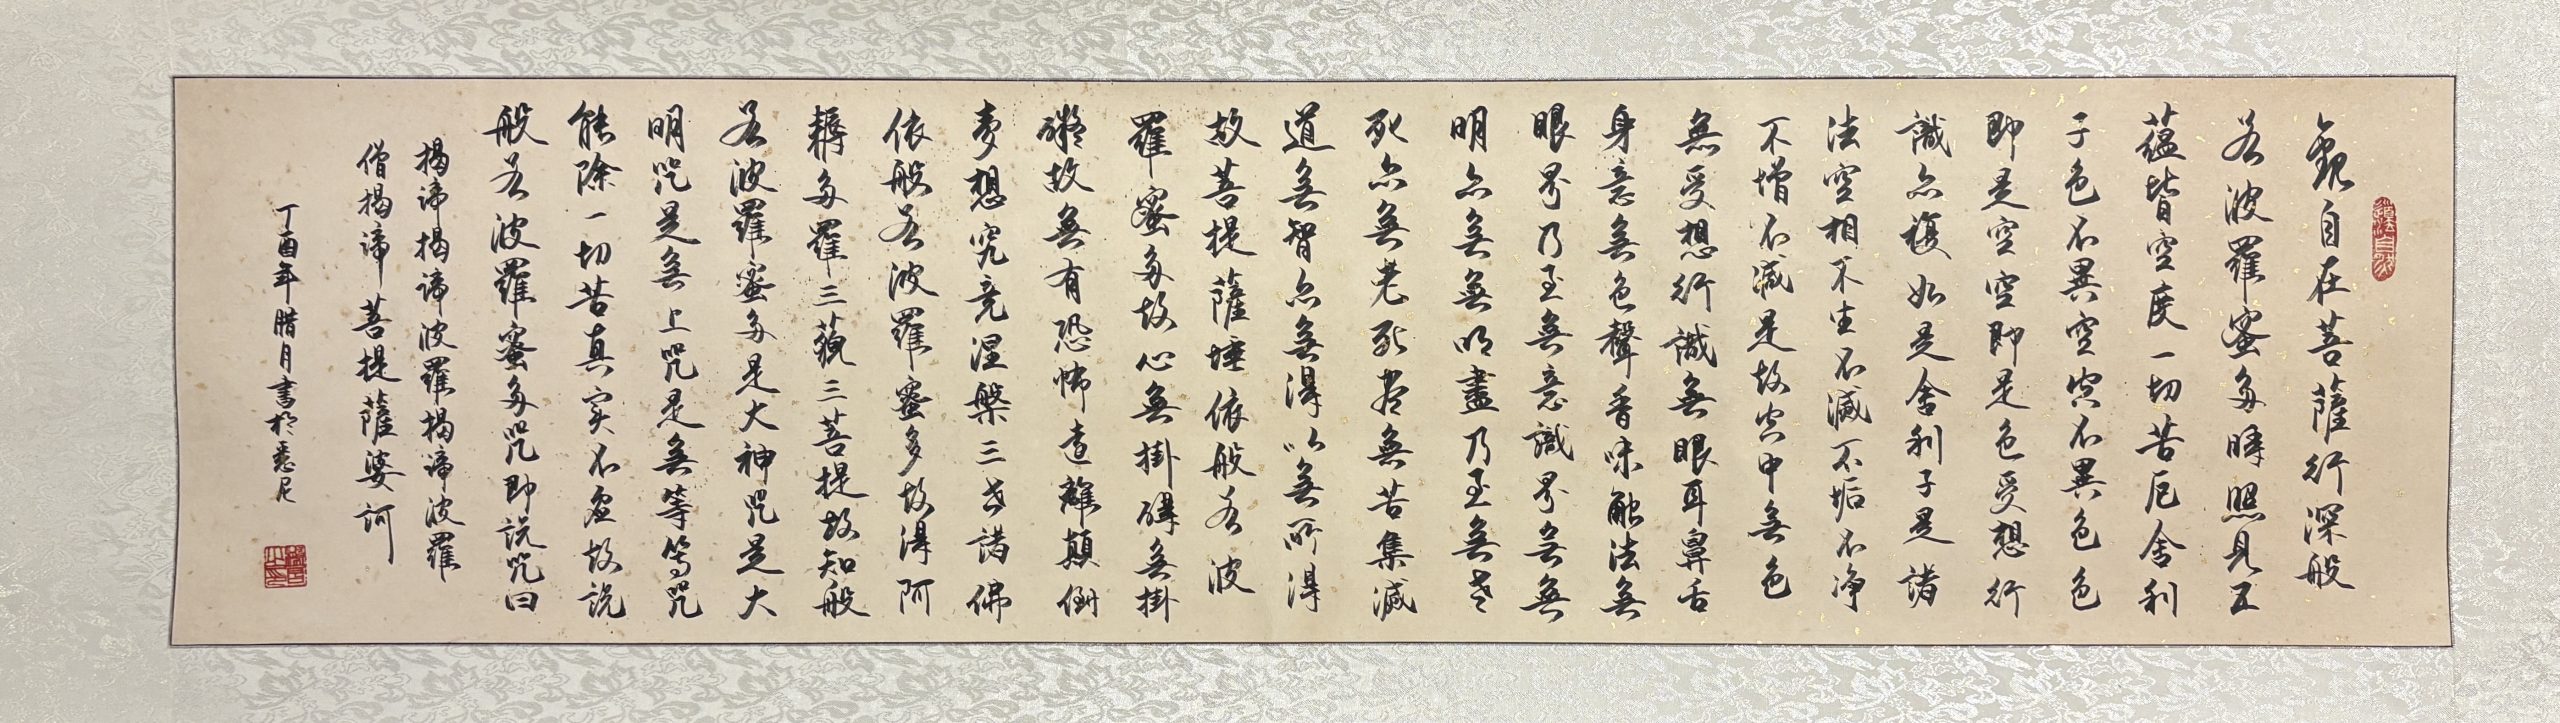 道法自然
觀自在菩薩行深般
若波羅蜜多時照見五
蘊皆空度一切苦厄舍利
子色不異空空不異色色
即是空空即是色受想行
識亦復如是舍利子是諸
法空相不生不滅不垢不净
不增不減是故空中無色
無受想行識無眼耳鼻舌
身意無色聲香味触法無
眼界乃至無意識界無無
明亦無無明盡乃至無老
死亦無老死盡無苦集滅
道無智亦無得以無所得
故菩提薩埵依般若波
羅蜜多故心無掛礙無掛
礙故無有恐怖遠離顛倒
夢想究竟涅槃三世諸佛
依般若波羅蜜多故得阿
耨多羅三藐三菩提故知般
若波羅蜜多是大神咒是大
明咒是無上咒是無等等咒
能除一切苦真实不虛故説
般若波羅蜜多咒即説咒曰
揭諦揭諦波羅揭諦波羅
僧揭諦菩提薩婆訶
丁酉年腊月書於悉尼